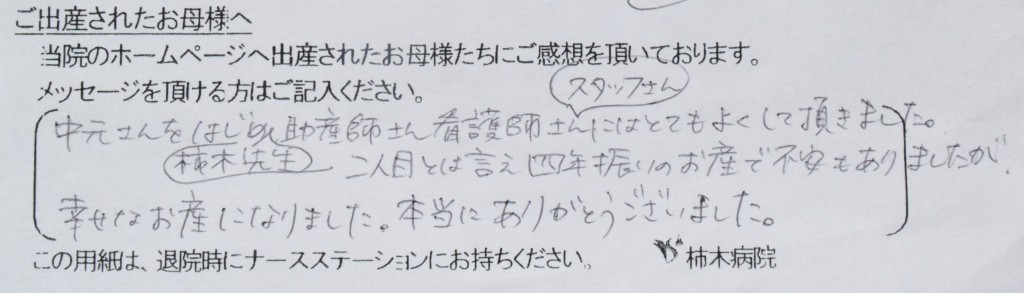 ご出産されたお母様へ
当院のホームページへ出産されたお母様たちにご感想を頂いております。
メッセージを頂ける方はご記入ください。
スタッフさん
中元さんをはじめ助産師さん看護師さんにはとてもよくして頂きました。
柿木先生
二人目とは言え四年振りのお産で不安もありましたが、
幸せなお産になりました。本当にありがとうございました。
この用紙は、退院時にナースステーションにお持ちください。
柿木病院